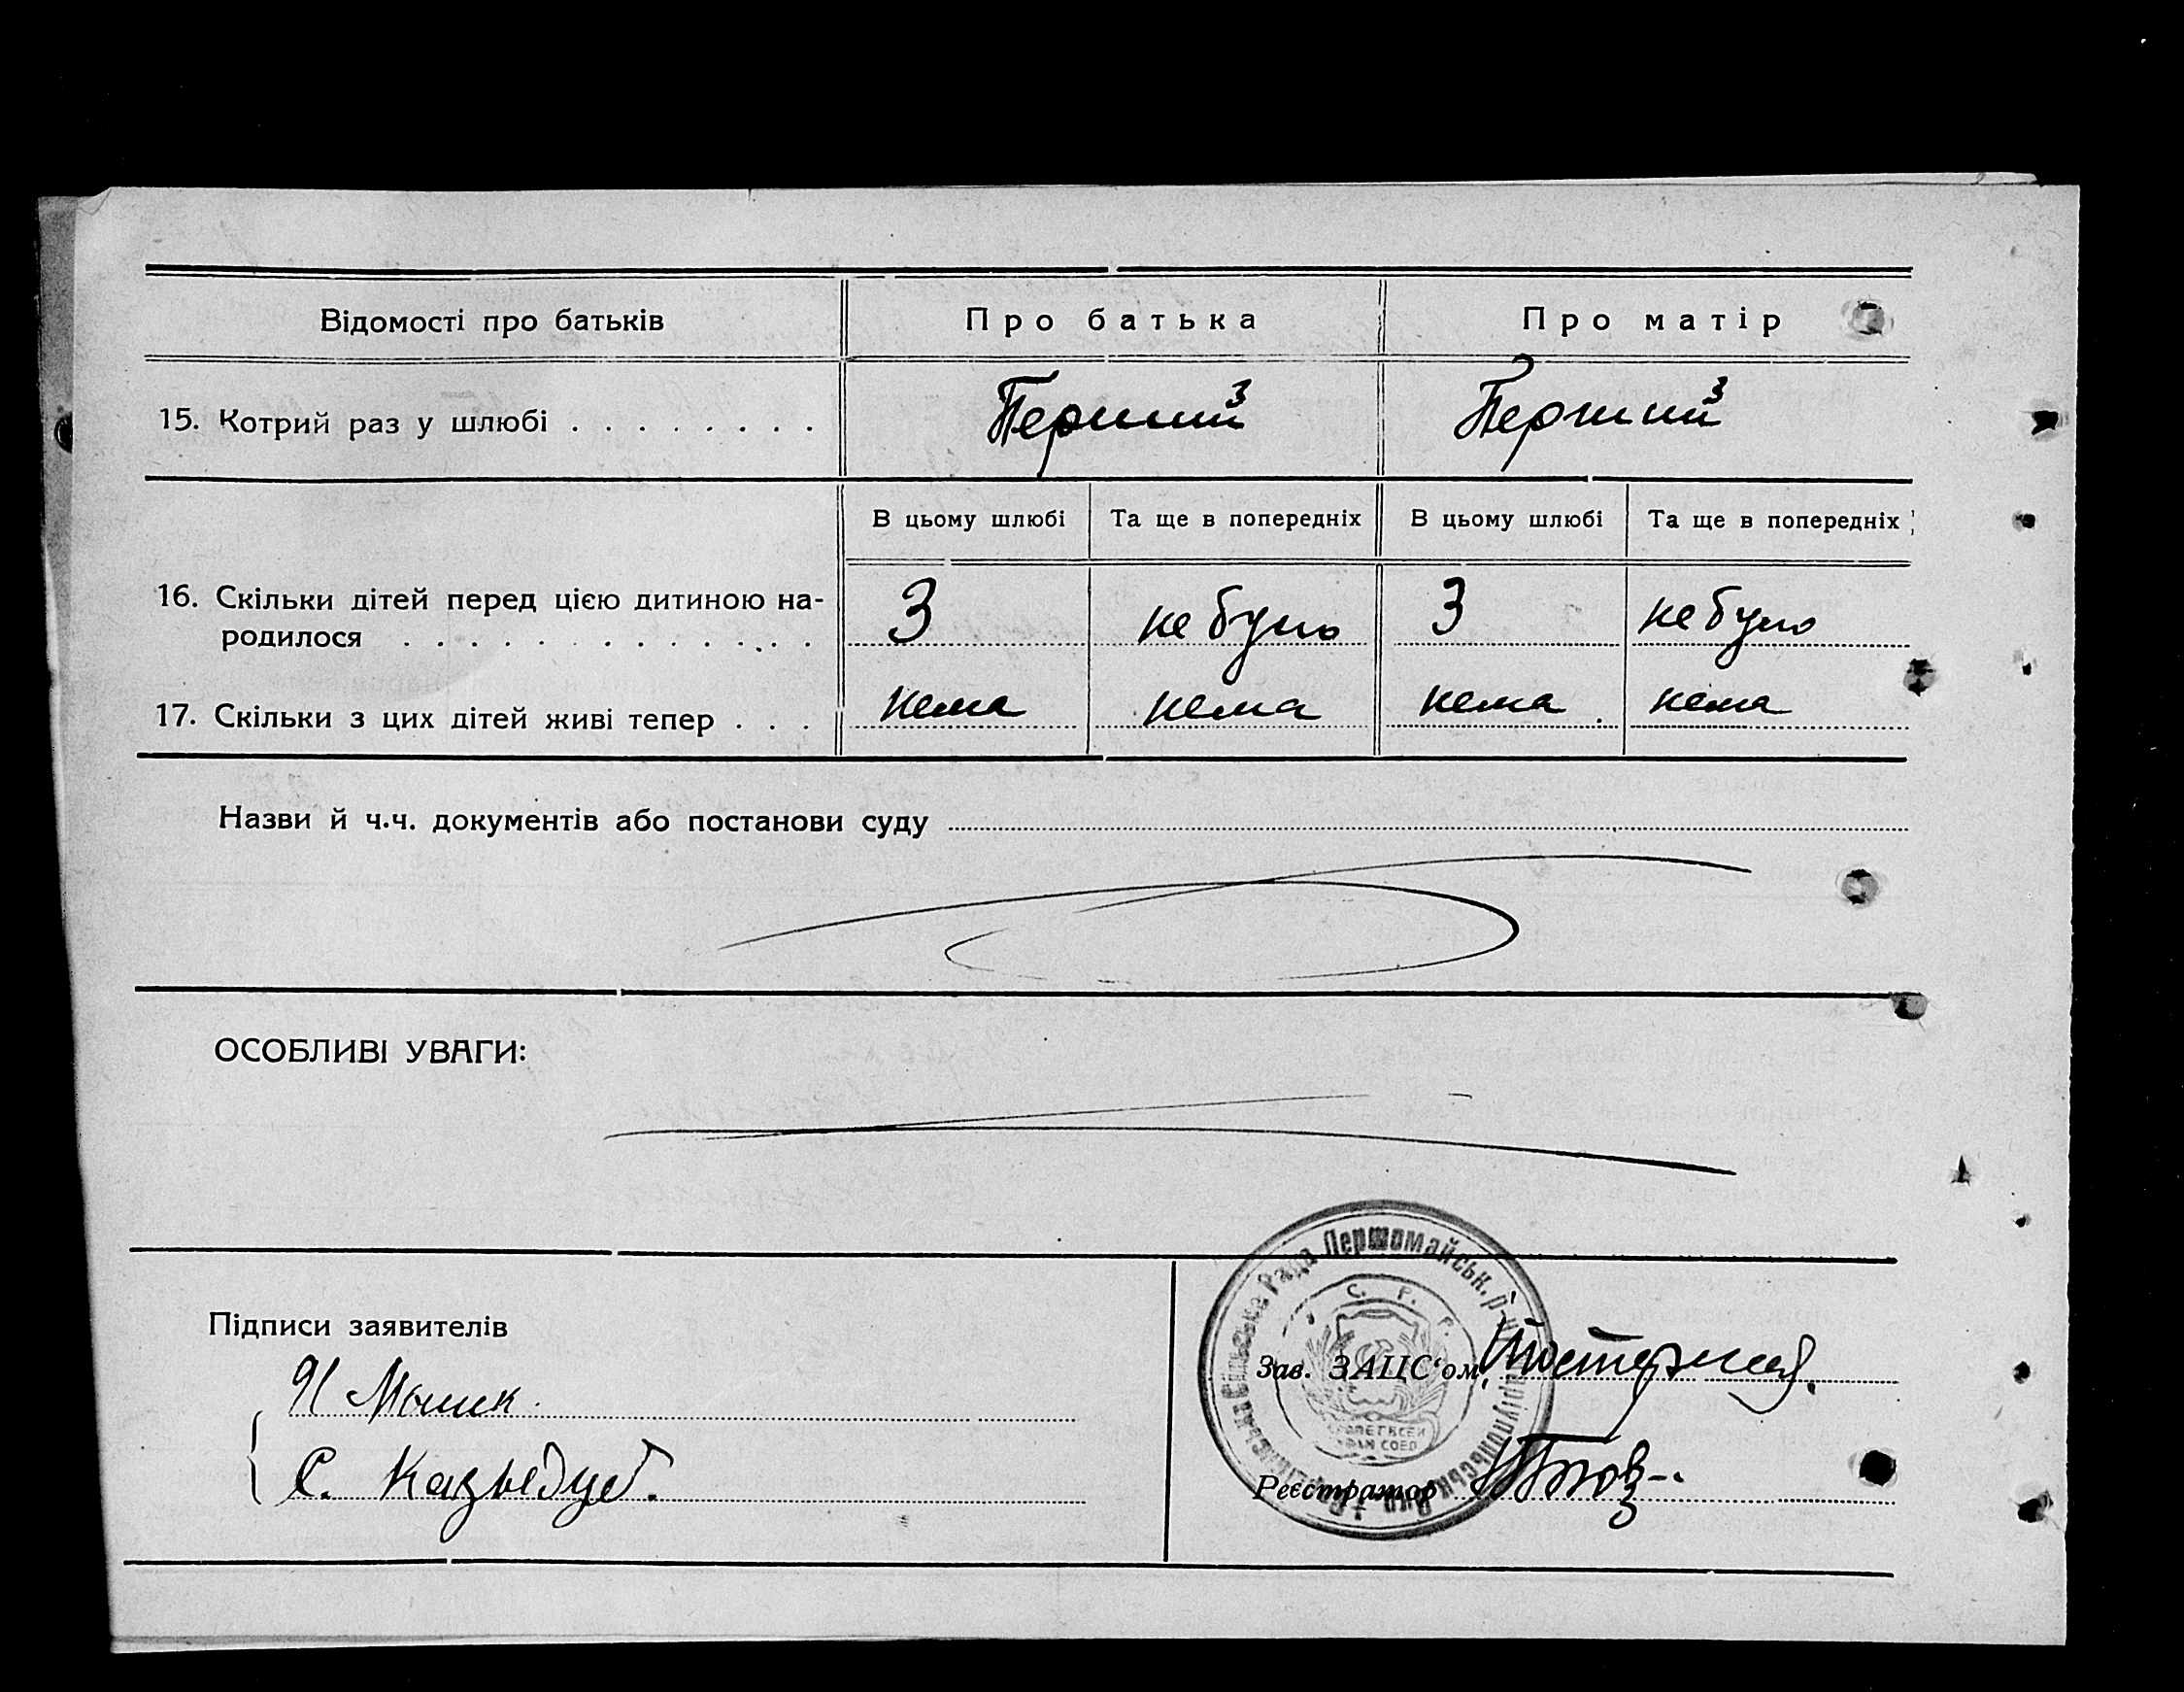 Відомості про батьків Про батька Про матір
15. Котрий раз у шлюбі . . . . . . . . Перший Перший
В цьому шлюбі Та ще в попередніх В цьому шлюбі Та ще в попередніх
16. Скільки дітей перед цією дитиною на-
родилося . . . . . . . . . . . . . 3 не було 3 не було
17. Скільки з цих дітей живі тепер . . . нема нема нема нема
Назви й ч.ч. документів або постанови суду
ОСОБЛИВІ УВАГИ:
Підписи заявителів
Зав. ЗАЦС'ом
С.
Реєстратор
Сільська Рада Першомайськ. р-н